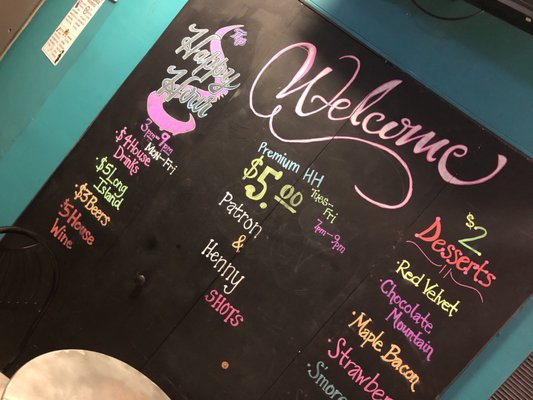 The
Happy
Hour
3pm-7pm
Mon-Fri
$4 House
Drinks
•$5 Long
Island
•$3 Beers
$5 House
Wine
Welcome
Premium HH
$5.00
Tues-
Fri
7pm-9pm
Patron
&
Henny
SHOTS
$2
Desserts
•Red Velvet
•Chocolate
Mountain
•Maple Bacon
•Strawberry
•Smore